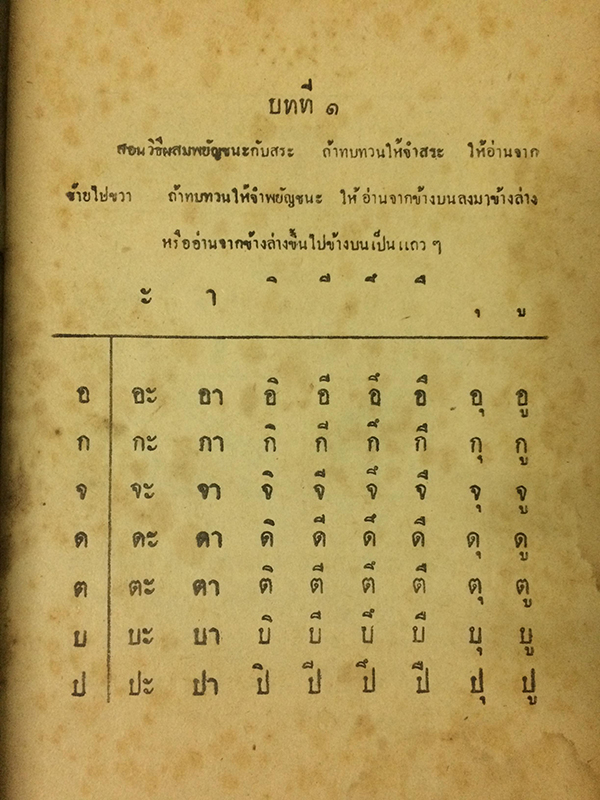 บทที่ ๑
สอนวิธีผสมพยัญชนะกับสระ ถ้าทบทวนให้จำสระ ให้อ่านจาก
ซ้ายไปขวา ถ้าทบทวนให้จำพยัญชนะ ให้อ่านจากข้างบนลงมาข้างล่าง
หรืออ่านจากข้างล่างขึ้นไปข้างบนเป็นแถว ๆ
ะ า ิ ี ึ ื ุ ู
อ อะ อา อิ อี อึ อื อุ อู
ก กะ กา กิ กี กึ กื กุ กู
จ จะ จา จิ จี จึ จื จุ จู
ด ดะ ดา ดิ ดี ดึ ดื ดุ ดู
ต ตะ ตา ติ ตี ตึ ตื ตุ ตู
บ บะ บา บิ บี บึ บื บุ บู
ป ปะ ปา ปิ ปี ปึ ปื ปุ ปู